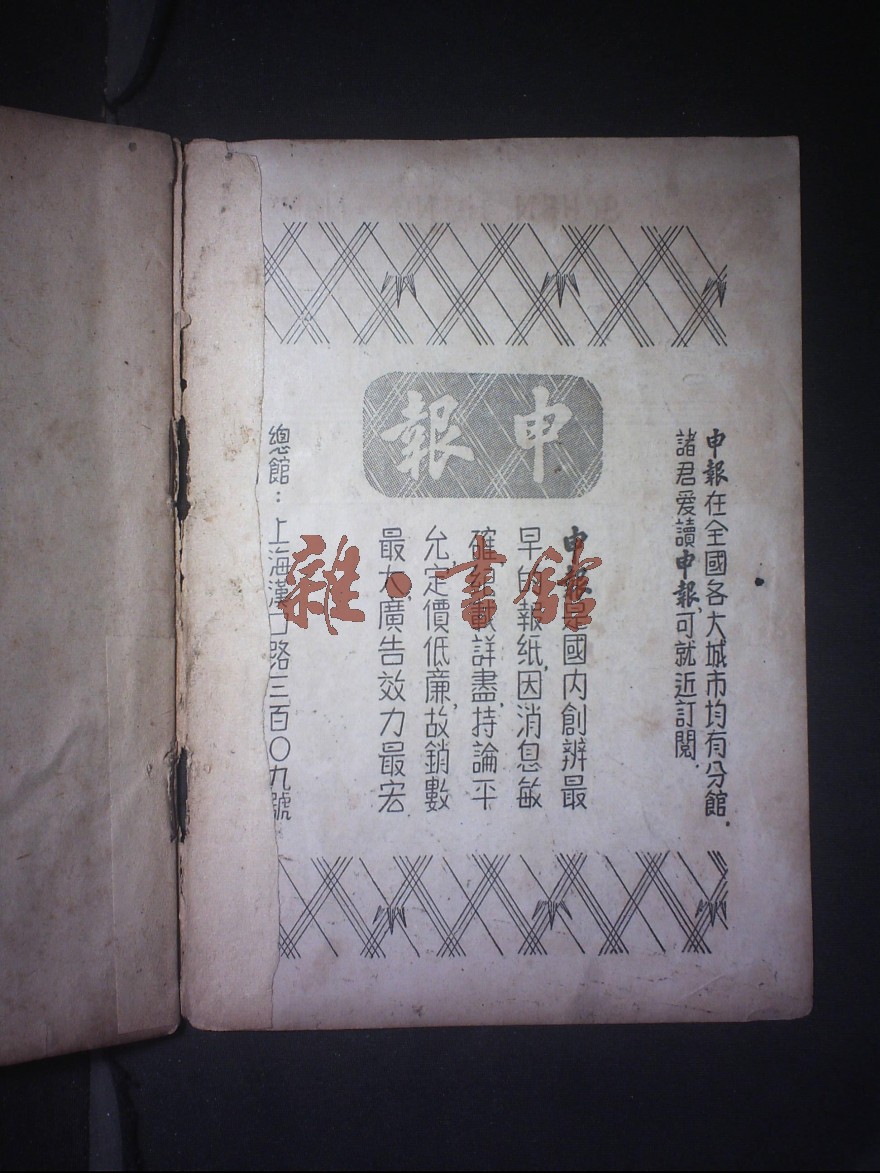 申報在全國各大城市均有分館.
諸君爱讀申報,可就近訂閲.
申報
申報是國内創辦最
早的報紙,因消息敏
確,紀載詳盡,持論平
允,定價低廉,故銷數
最大,廣告效力最宏
總館:上海漢口路三百〇九號
雜·書館